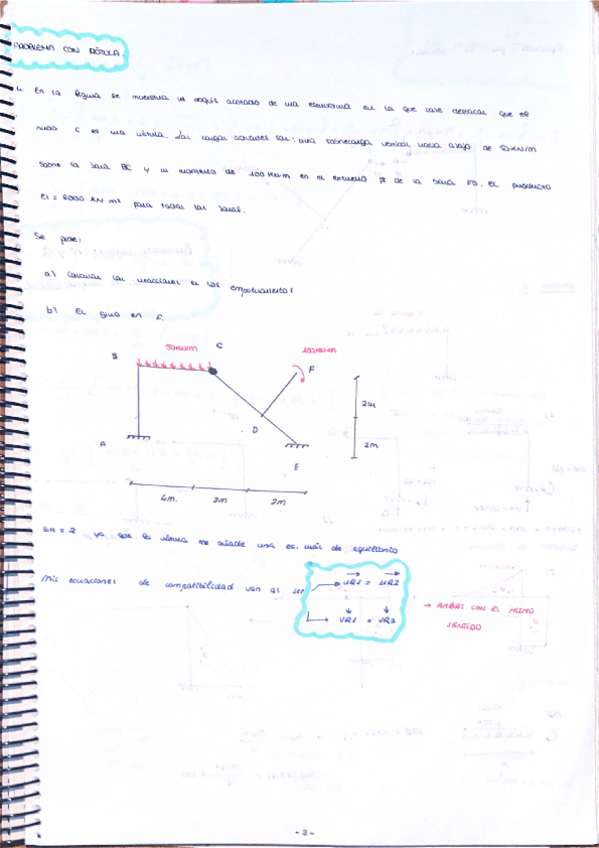 PROBLEMA CON RÓTULA.
4. En la figura se muestra un croquis acotado de una estructura en la que cabe destacar que el
nudo C es una rótula. Las cargas actuantes son: una sobrecarga vertical hacia abajo de 50KN/m
sobre la barra BC y un momento de 100 KN·m en el extremo F de la barra FD. El producto
EI = 6000 KN m² para todas las barras.
Se pide:
a) Calcular las reacciones en los empotramientos
b) El giro en F.
50KN/m
C
100KN·m
B
F
2m
D
2m
A
E
4m.
2m
2m
GH = 2 ya que la rótula me añade una ec. más de equilibrio
Mis ecuaciones de compatibilidad van a ser
UR1 = UR2
VR1 = VR2
→ AMBAS CON EL MISMO
SENTIDO
- 3 -